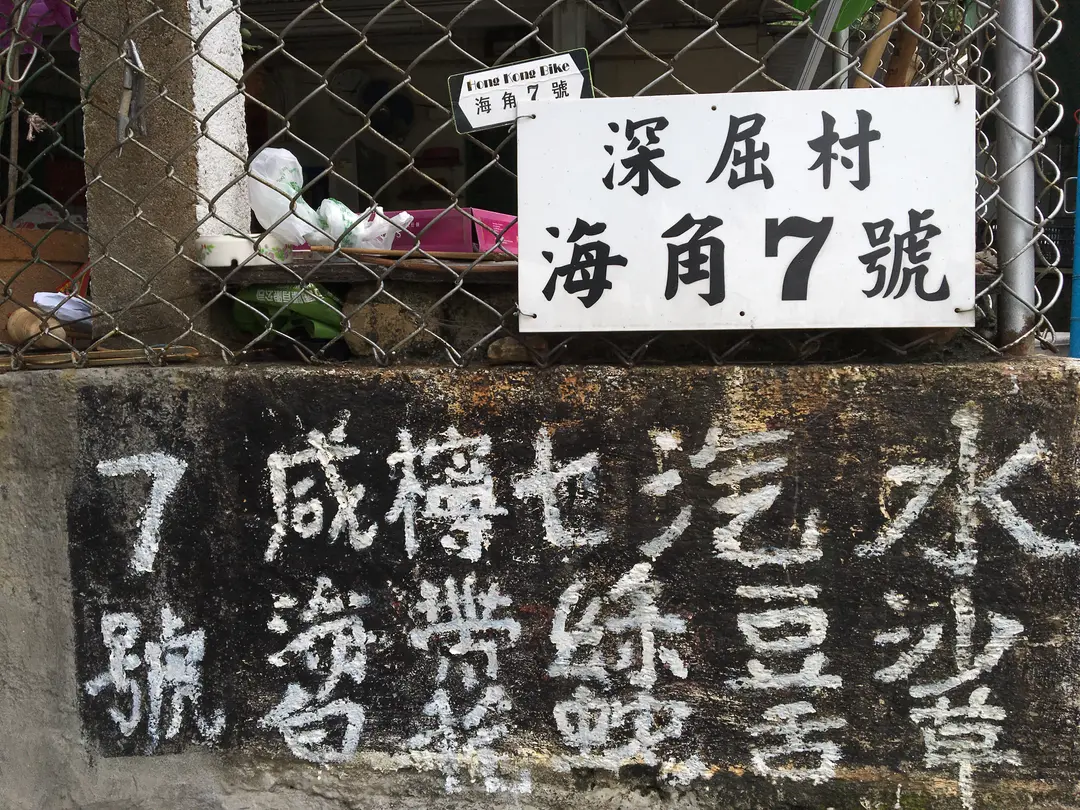 Hong Kong Bike
海角7號
深屈村
海角7號
水沙草
汽豆舌
七絲
樽帶
咸
7號